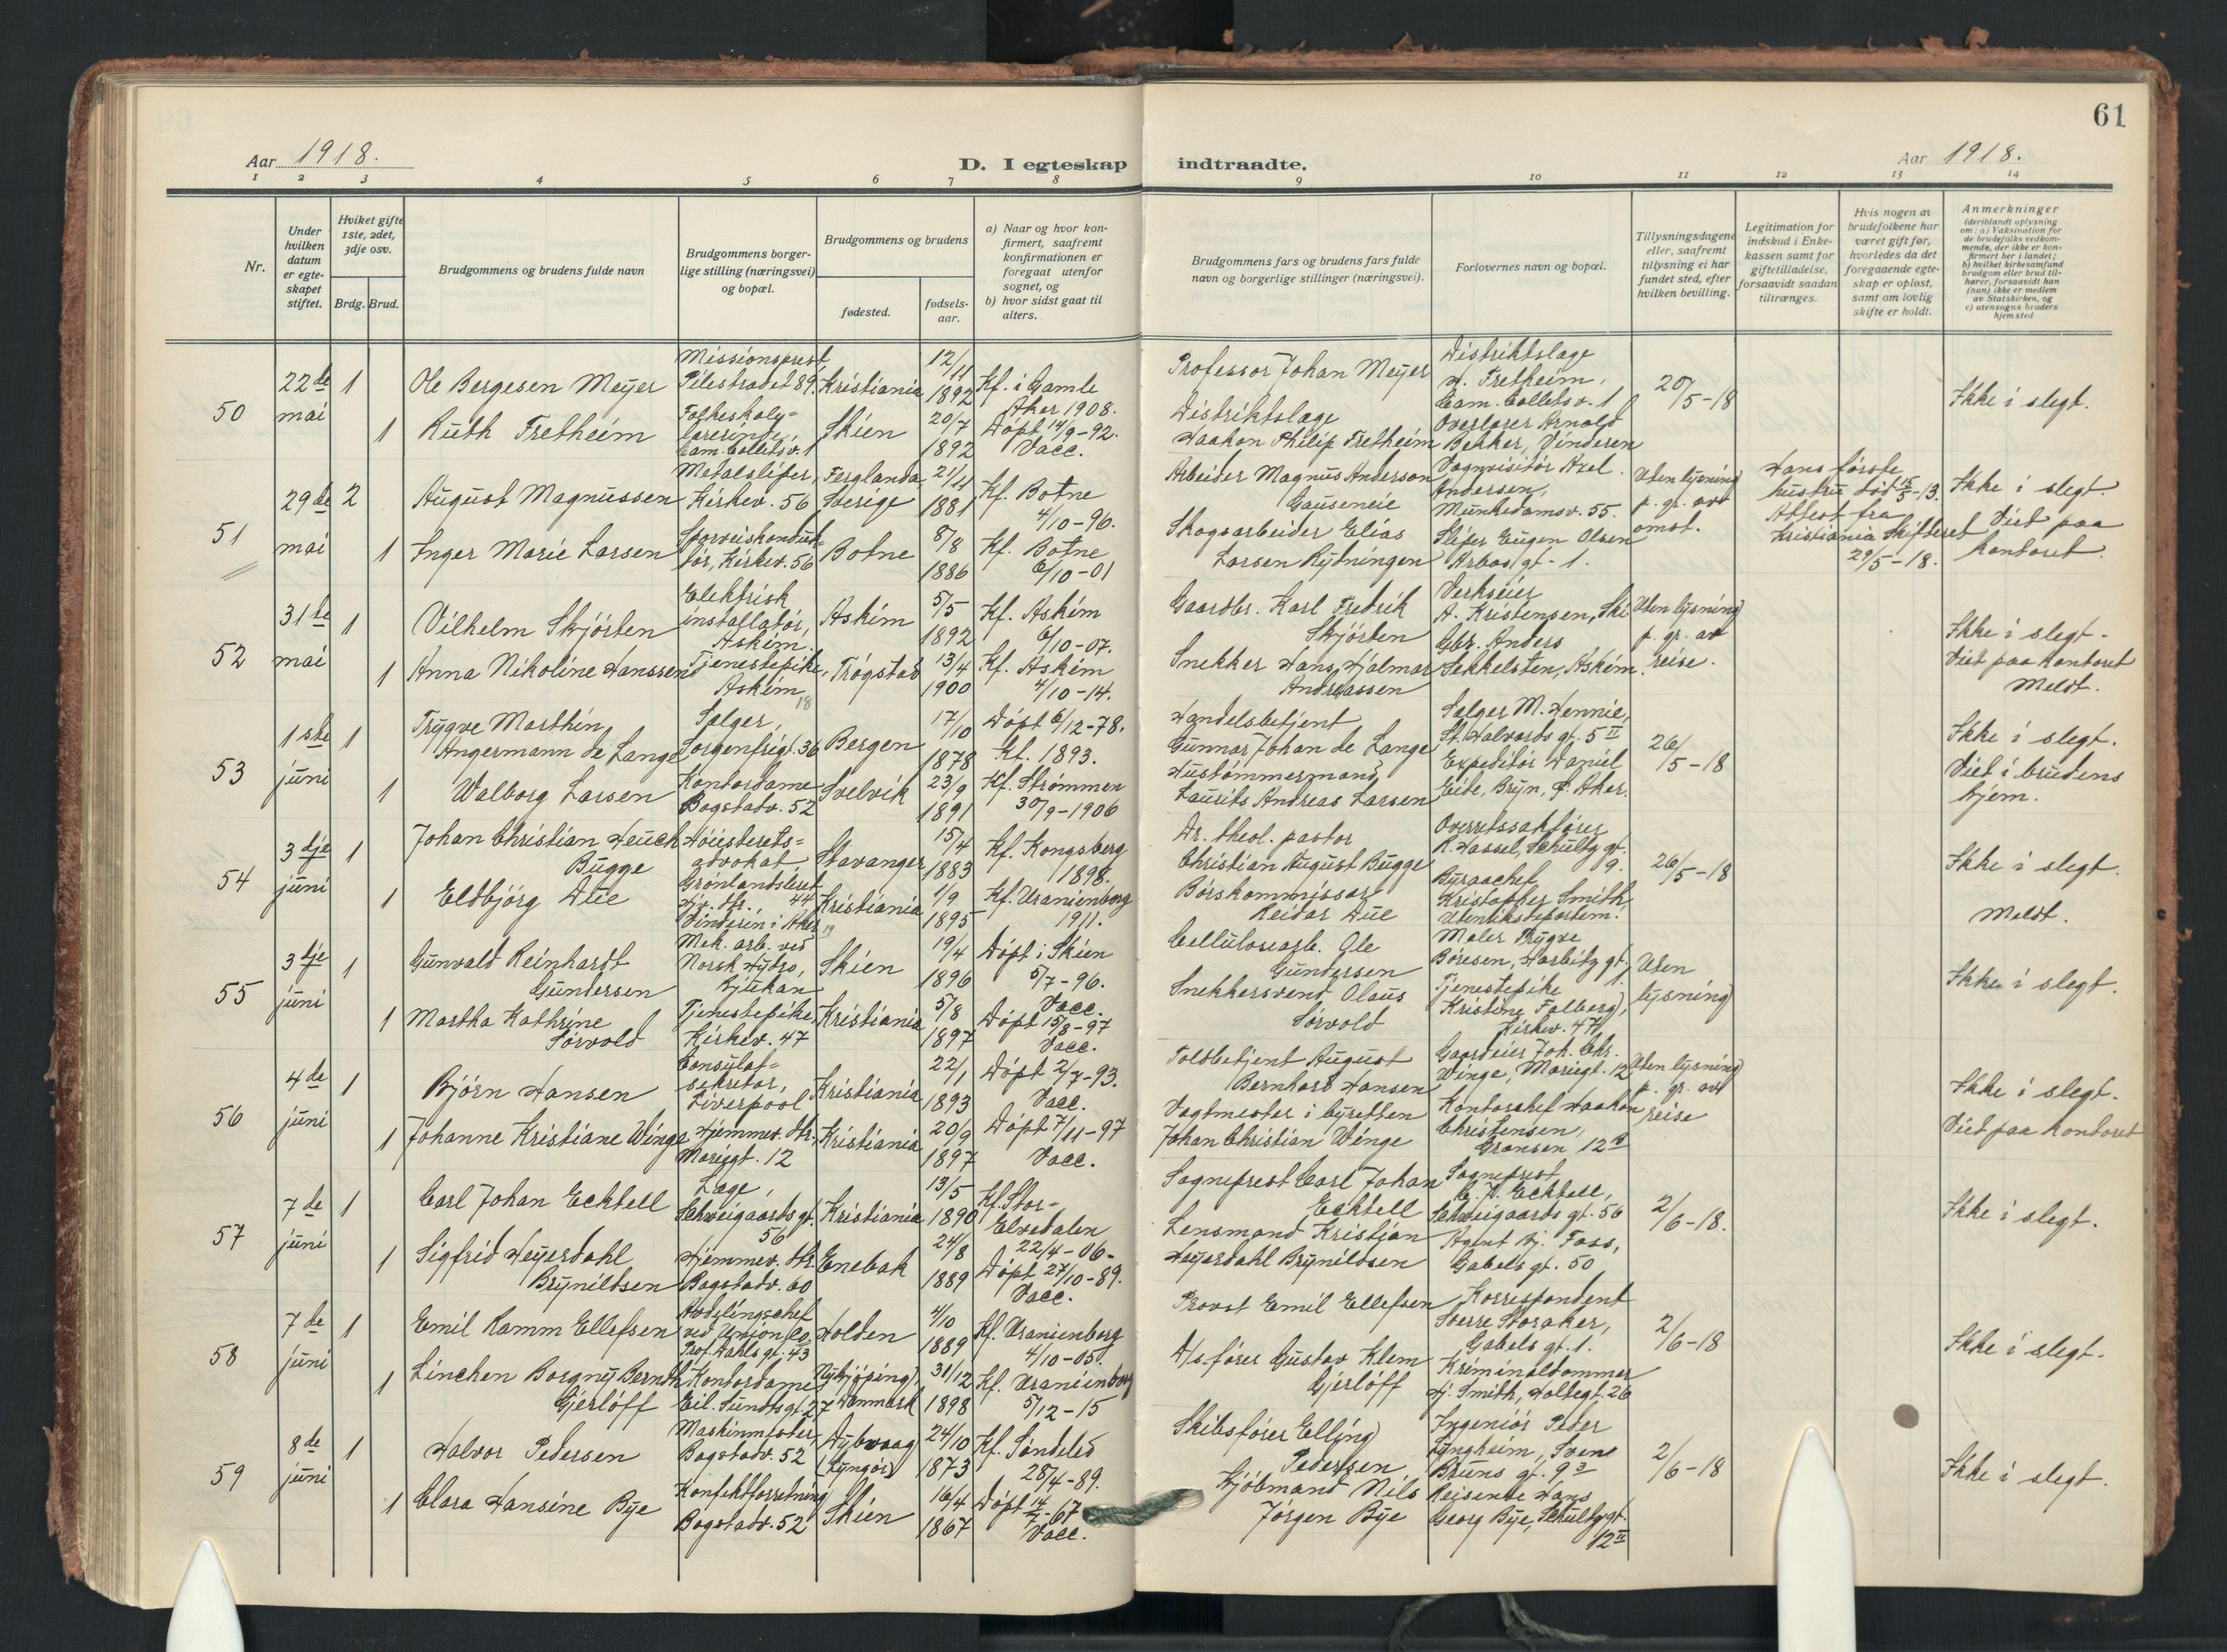 61
Aar 1918.
D. I egteskap indtraadte.
Aar 1918.
1 2 3 4 5 6 7 8 9 10 11 12 13 14
Nr.
Under hvilken datum er egteskapet stiftet.
Hvilket gifte 1ste, 2det, 3dje osv.
Brdg. Brud.
Brudgommens og brudens fulde navn
Brudgommens borgerlige stilling (næringsvei) og bopæl.
Brudgommens og brudens
fødested.
fødselsaar.
a) Naar og hvor konfirmert, saafremt konfirmationen er foregaat utenfor sognet, og
b) hvor sidst gaat til alters.
Brudgommens fars og brudens fars fulde navn og borgerlige stillinger (næringsvei).
Forlovernes navn og bopæl.
Tillysningsdagene eller, saafremt tillysning ei har fundet sted, efter hvilken bevilling.
Legitimation for indskud i Enkekassen samt for giftetilladelse, forsaavidt saadan tiltrænges.
Hvis nogen av brudefolkene har været gift før, hvorledes da det foregaaende egteskap er opløst, samt om lovlig skifte er holdt.
Anmerkninger
(deriblandt oplysning om: a) Vaksination for de brudefolks vedkommende, der ikke er konfirmert her i landet; b) hvilket kirkesamfund brudgom eller brud tilhører, forsaavidt han (hun) ikke er medlem av Statskirken, og c) utensogns bruders hjemsted.
50
22de mai
1
Ole Bergesen Meyer
Missionsprest, Pilestrædet 89,
Kristiania
12/11 1892
Kf. i Gamle Aker 1908.
Professor Johan Meyer
Distriktslæge H. Fretheim, Cam. Colletsv. 1
20/5-18
Ikke i slegt.
1
Ruth Fretheim
Cam. Colletsv. 1
Skien
20/7 1892
Døpt 14/9-92. Vacc.
Distriktslæge Haakon Philip Fretheim
Overlærer Arnold Bekker, Vinderen
51
29de mai
2
August Magnussen
Metalsliper, Kirkev. 56
Ferglanda Sverige
21/11 1881
Kf. Botne 4/10-96.
Arbeider Magnus Anderson
Vognvisitør Axel Andersen, Munkedamsv. 55.
Uten lysning p. gr. av omst.
Hans første hustru død 15/5-13. Attest fra Kristiania Skifteret 29/5-18.
Ikke i slegt.
Viet paa kontoret.
1
Inger Marie Larsen
Sporveiskonduktør, Kirkev. 56
Botne
8/8 1886
Kf. Botne 6/10-01
Skogsarbeider Elias Larsen Rytningen
Sliper Eugen Olsen gt. 1.
52
31te mai
1
Vilhelm Skjørten
Elektrisk installatør, Askim.
Askim
5/5 1892
Kf. Askim 6/10-07.
Gaardbr. Karl Fredrik Skjørten
Verkseier A. Kristensen, Ski
Uten lysning p. gr. av reise.
Ikke i slegt.
Viet paa kontoret
Meldt.
1
Anna Nikoline Hanssen
Tjenestepike, Askim
Trøgstad
13/4 1900
Kf. Askim 4/10-14.
Snekker Hans Hjalmar Andreassen
Gbr. Anders Sekkelsten, Askim.
53
1ste juni
1
Trygve Marthin Angermann de Lange
Sælger, Sorgenfrigt. 36
Bergen
17/10 1878
Døpt 6/12-78. Kf. 1893.
Handelsbetjent Gunnar Johan de Lange
Sælger M. Hennie, St. Halvards gt. 5 II
26/5-18
Ikke i slegt.
Viet i brudens hjem.
1
Valborg Larsen
Kontordame Bogstadv. 52
Svelvik
23/9 1891
Kf. Strømmen 30/9-1906
Hustømmermand Laurits Andreas Larsen
Expeditør Daniel Eide, Bryn, Ø. Aker.
54
3dje juni
1
Johan Christian Heuch Bugge
Høiesterets=advokat, Grønlandsleret 44
Stavanger
15/4 1883
Kf. Kongsberg 1898.
Dr. theol. pastor Christian August Bugge
Overretssakfører R. Hassel, Schultz gt. 9.
26/5-18
Ikke i slegt.
Meldt.
1
Eldbjørg Due
Vinderen i Aker
Kristiania
1/9 1895
Kf. Uranienborg 1911.
Børskommissær Reidar Due
Byraachef Kristopher Smith, Utenriksdepartem.
55
3dje juni
1
Gunvald Reinhardt Gundersen
Mek. arb. ved Norsk Hydro, Rjukan
Skien
19/4 1896
Døpt i Skien 5/7-96. Vacc.
Cellulosearb. Ole Gundersen
Maler Trygve Børesen, Harbitz gt. 1.
Uten lysning
Ikke i slegt.
1
Martha Kathrine Sørvold
Tjenestepike, Kirkev. 47
Kristiania
5/8 1897
Døpt 15/8-97 Vacc.
Snekkersvend Olaus Sørvold
Tjenestepike Kristine Falberg, Kirkev. 47
56
4de juni
1
Bjørn Hansen
Consulat=sekretær, Liverpool
Kristiania
22/1 1893
Døpt 2/7-93. Vacc.
Toldbetjent August Bernhard Hansen
Gaardeier Joh. Chr. Winge, Mariegt. 12
Uten lysning p. gr. av reise
Ikke i slegt.
Viet paa kontoret
1
Johanne Kristiane Winge
Hjemmev. dtr. Mariegt. 12
Kristiania
20/9 1897
Døpt 7/11-97 Vacc.
Vagtmester i byretten Johan Christian Winge
Kontorchef Haakon Christensen, Grænsen 12
57
7de juni
1
Carl Johan Eckhell
Læge, Schweigaards gt. 56
Kristiania
13/5 1890
Kf. Stor-Elvedalen 22/4-06.
Sogneprest Carl Johan Eckhell
Sogneprest C. J. Eckhell, Schweigaards gt. 56
2/6-18.
Ikke i slegt.
1
Sigfrid Heyerdahl Brynildsen
Hjemmev. dtr. Bogstadv. 60
Enebak
24/8 1889
Døpt 27/10-89. Vacc.
Lensmand Kristian Heyerdahl Brynildsen
Agent Bj. Foss, Gabels gt. 50
58
7de juni
1
Emil Ramm Ellefsen
Avdelingschef ved Union Co. Prof. Dahls gt. 43
Holden
4/10 1889
Kf. Uranienborg 4/10-05.
Provst Emil Ellefsen
Korrespondent Sverre Storaker, Gabels gt. 1.
2/6-18
Ikke i slegt.
1
Linchen Borgny Bernth Gjerløff
Kontordame, Eil. Sundts gt. 27
Nykjøping, Danmark
31/12 1898
Kf. Uranienborg 5/12-15
D/s. fører Gustav Klem Gjerløff
Kriminaldommer Hj. Smith, Holtegt. 26
59
8de juni
1
Halvor Pedersen
Maskinmester, Bogstadv. 52
Dybvaag (Lyngør)
24/10 1873
Kf. Søndeled 28/4-89.
Skibsfører Elling Pedersen
Ingeniør Peder Lyngheim, Svend Bruns gt. 9
2/6-18
Ikke i slegt.
1
Clara Hansine Bye
Konfektforretning Bogstadv. 52
Skien
16/4 1867
Døpt 14/7-67 Vacc.
Kjøbmand Nils Jørgen Bye
Reisende Hans Georg Bye, Schultzgt. 12 II